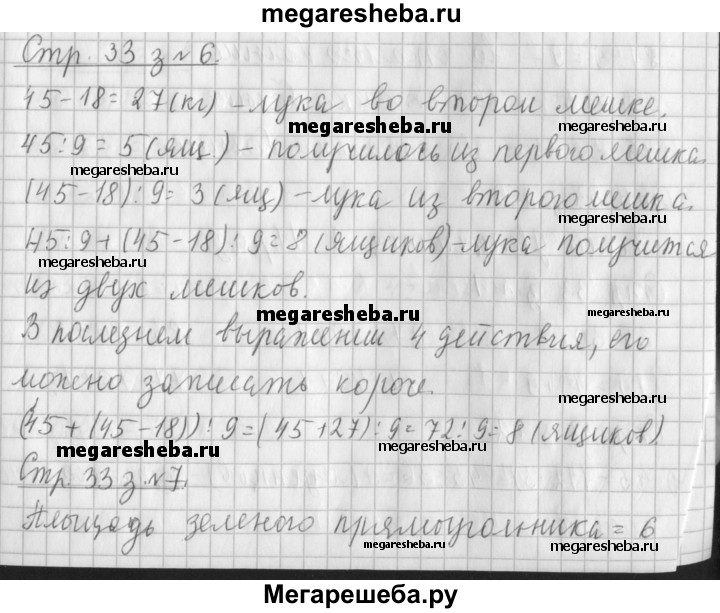 megaresheba.ru
Стр. 33 з № 6.
45-18=27(кг) -лука во втором мешке.
megaresheba.ru
45:9=5(ящ.) - получилось из первого мешка.
megaresheba.ru
megaresheba.ru
(45-18):9=3(ящ) -лука из второго мешка.
megaresheba.ru
45:9+(45-18):9=8(ящиков)-лука получится
megaresheba.ru
megaresheba.ru
из двух мешков.
megaresheba.ru
megaresheba.ru
В последнем выражении 4 действия, его
можно записать короче.
megaresheba.ru
(45+(45-18)):9=(45+27):9=72:9=8(ящиков)
megaresheba.ru
megaresheba.ru
megaresheba.ru
Стр. 33 з. №7.
Площадь зеленого прямоугольника = 6
megaresheba.ru
megaresheba.ru
Мегарешеба.ру